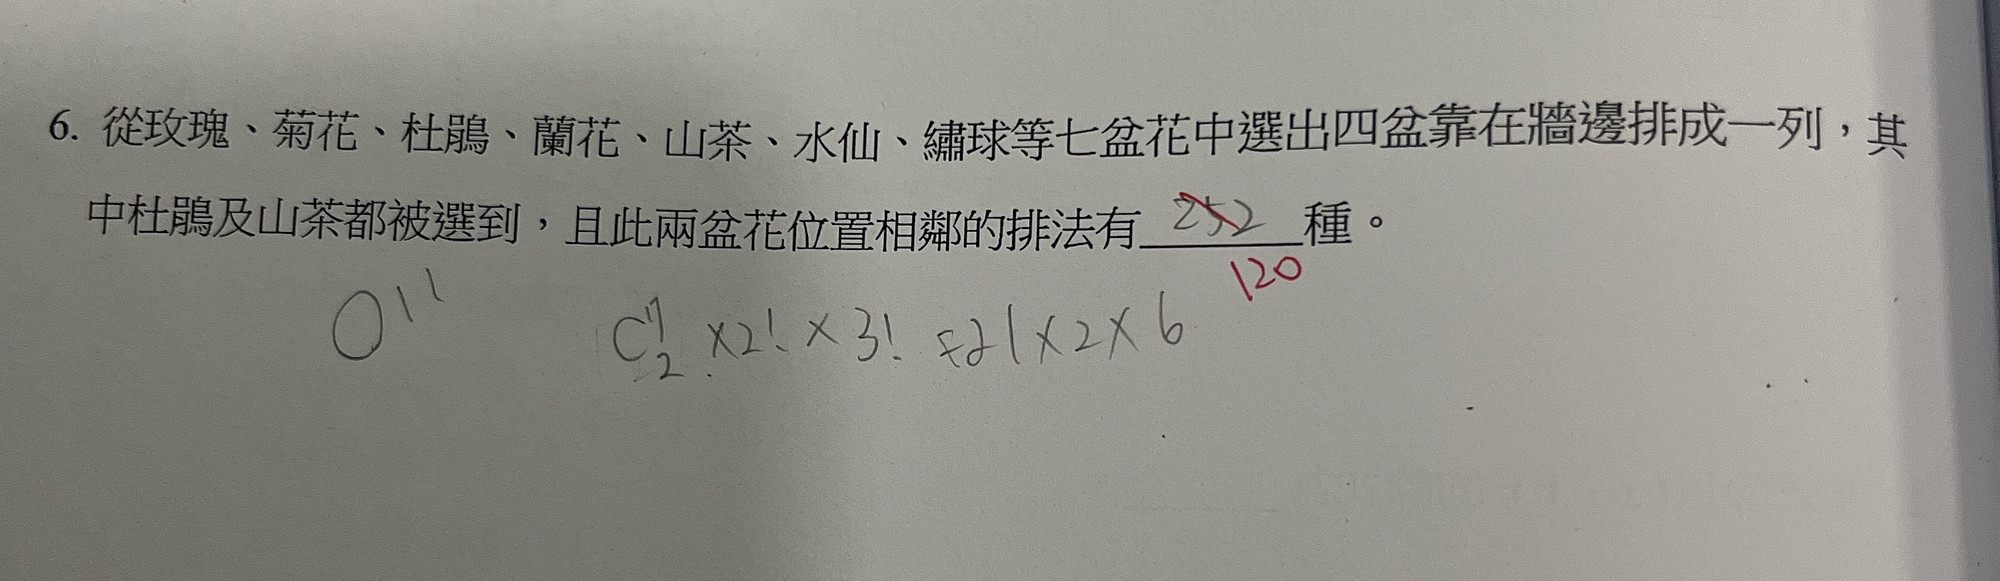 6. 從玫瑰、菊花、杜鵑、蘭花、山茶、水仙、繡球等七盆花中選出四盆靠在牆邊排成一列，其
中杜鵑及山茶都被選到，且此兩盆花位置相鄰的排法有 252 種。
120
O 1 1 C⁷₂ × 2! × 3! = 21 × 2 × 6